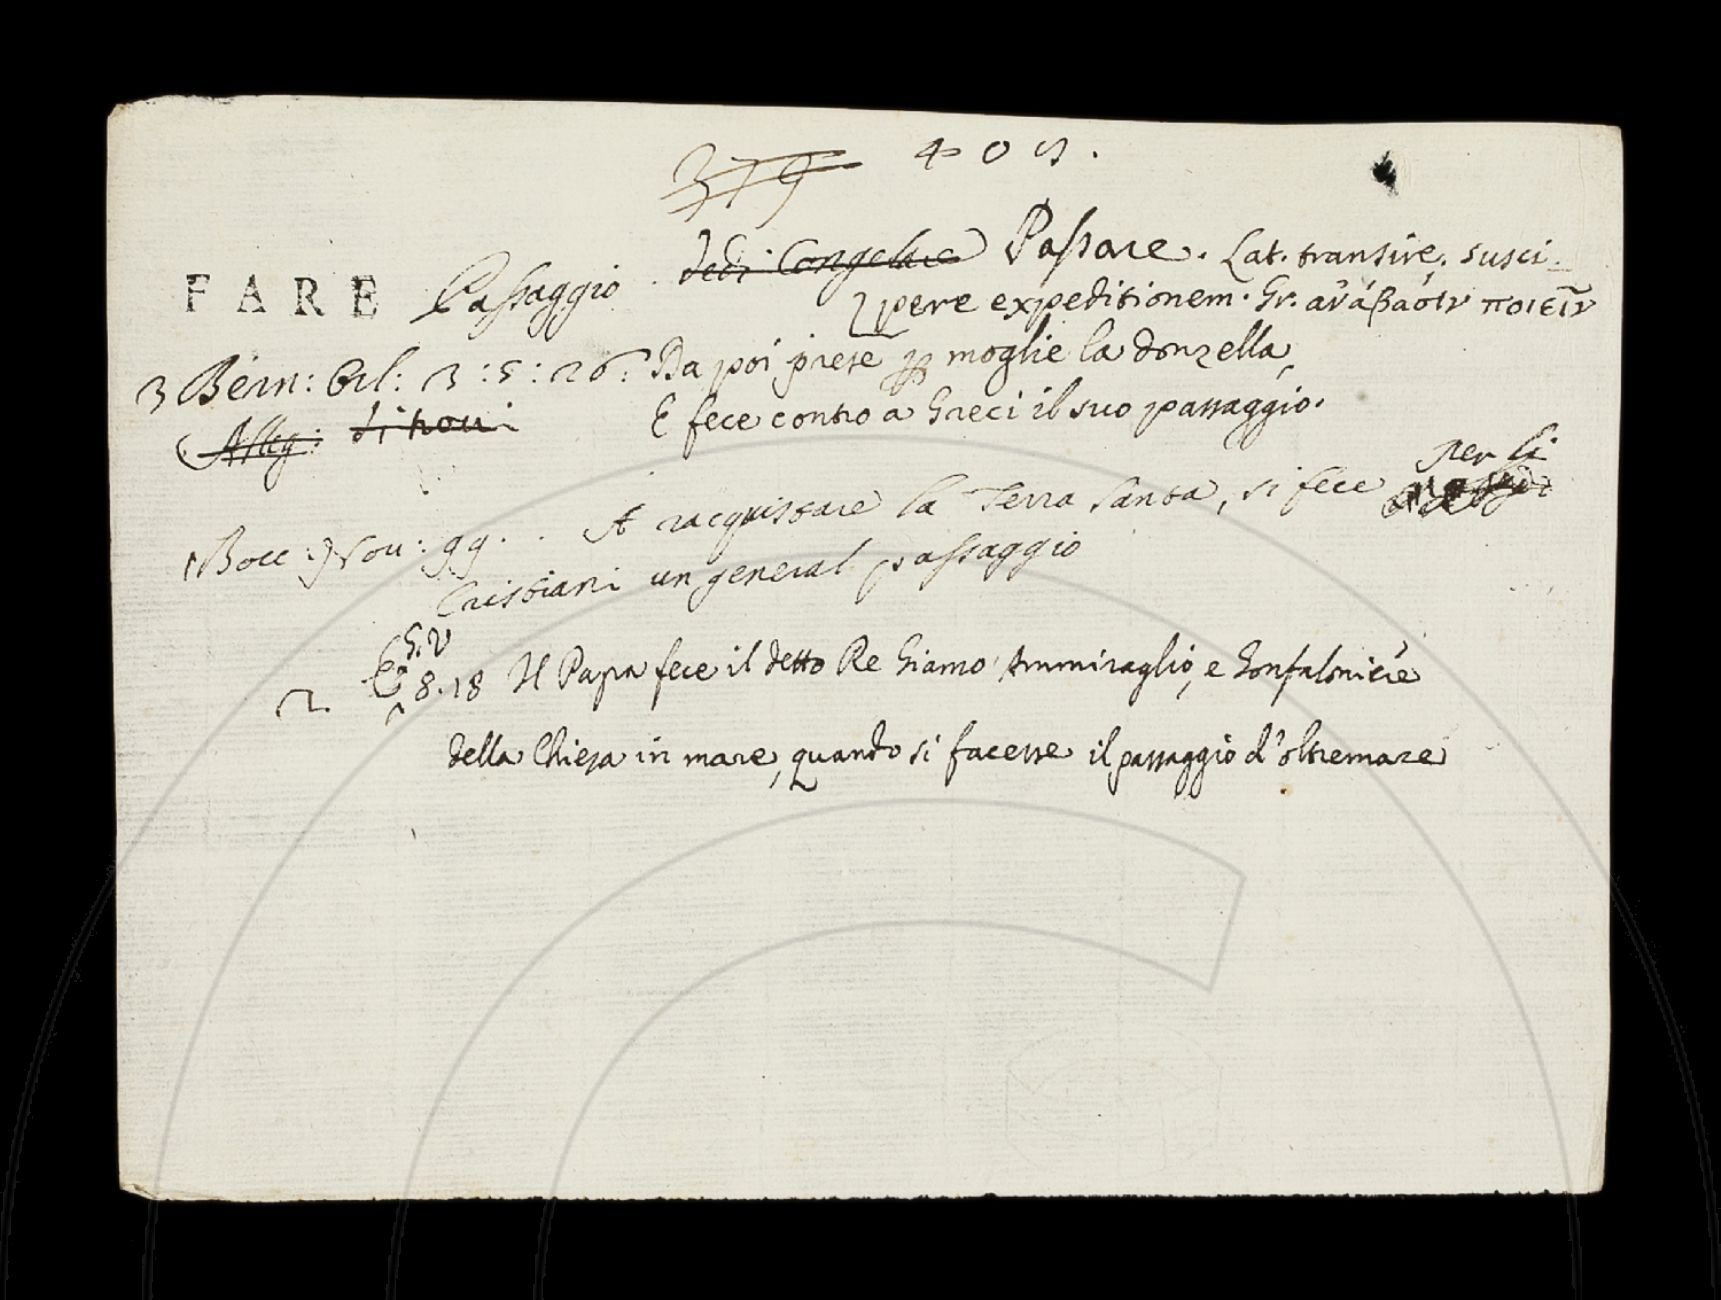 379 405.
FARE Passaggio. Passare. Lat. transire. susci-
pere expeditionem. Gr. ἀνάβασιν ποιεῖν
3 Bern: Orl: 3:5:26: Da poi prese per moglie la donzella,
E fece contro a Greci il suo passaggio.
1 Bocc: Nov: 99. A racquistare la Terra Santa, si fece per li
Cristiani un general passaggio
G.V
2. 8.18 Il Papa fece il detto Re Giamo Ammiraglio, e Gonfaloniere
della Chiesa in mare, quando si facesse il passaggio d'oltremare